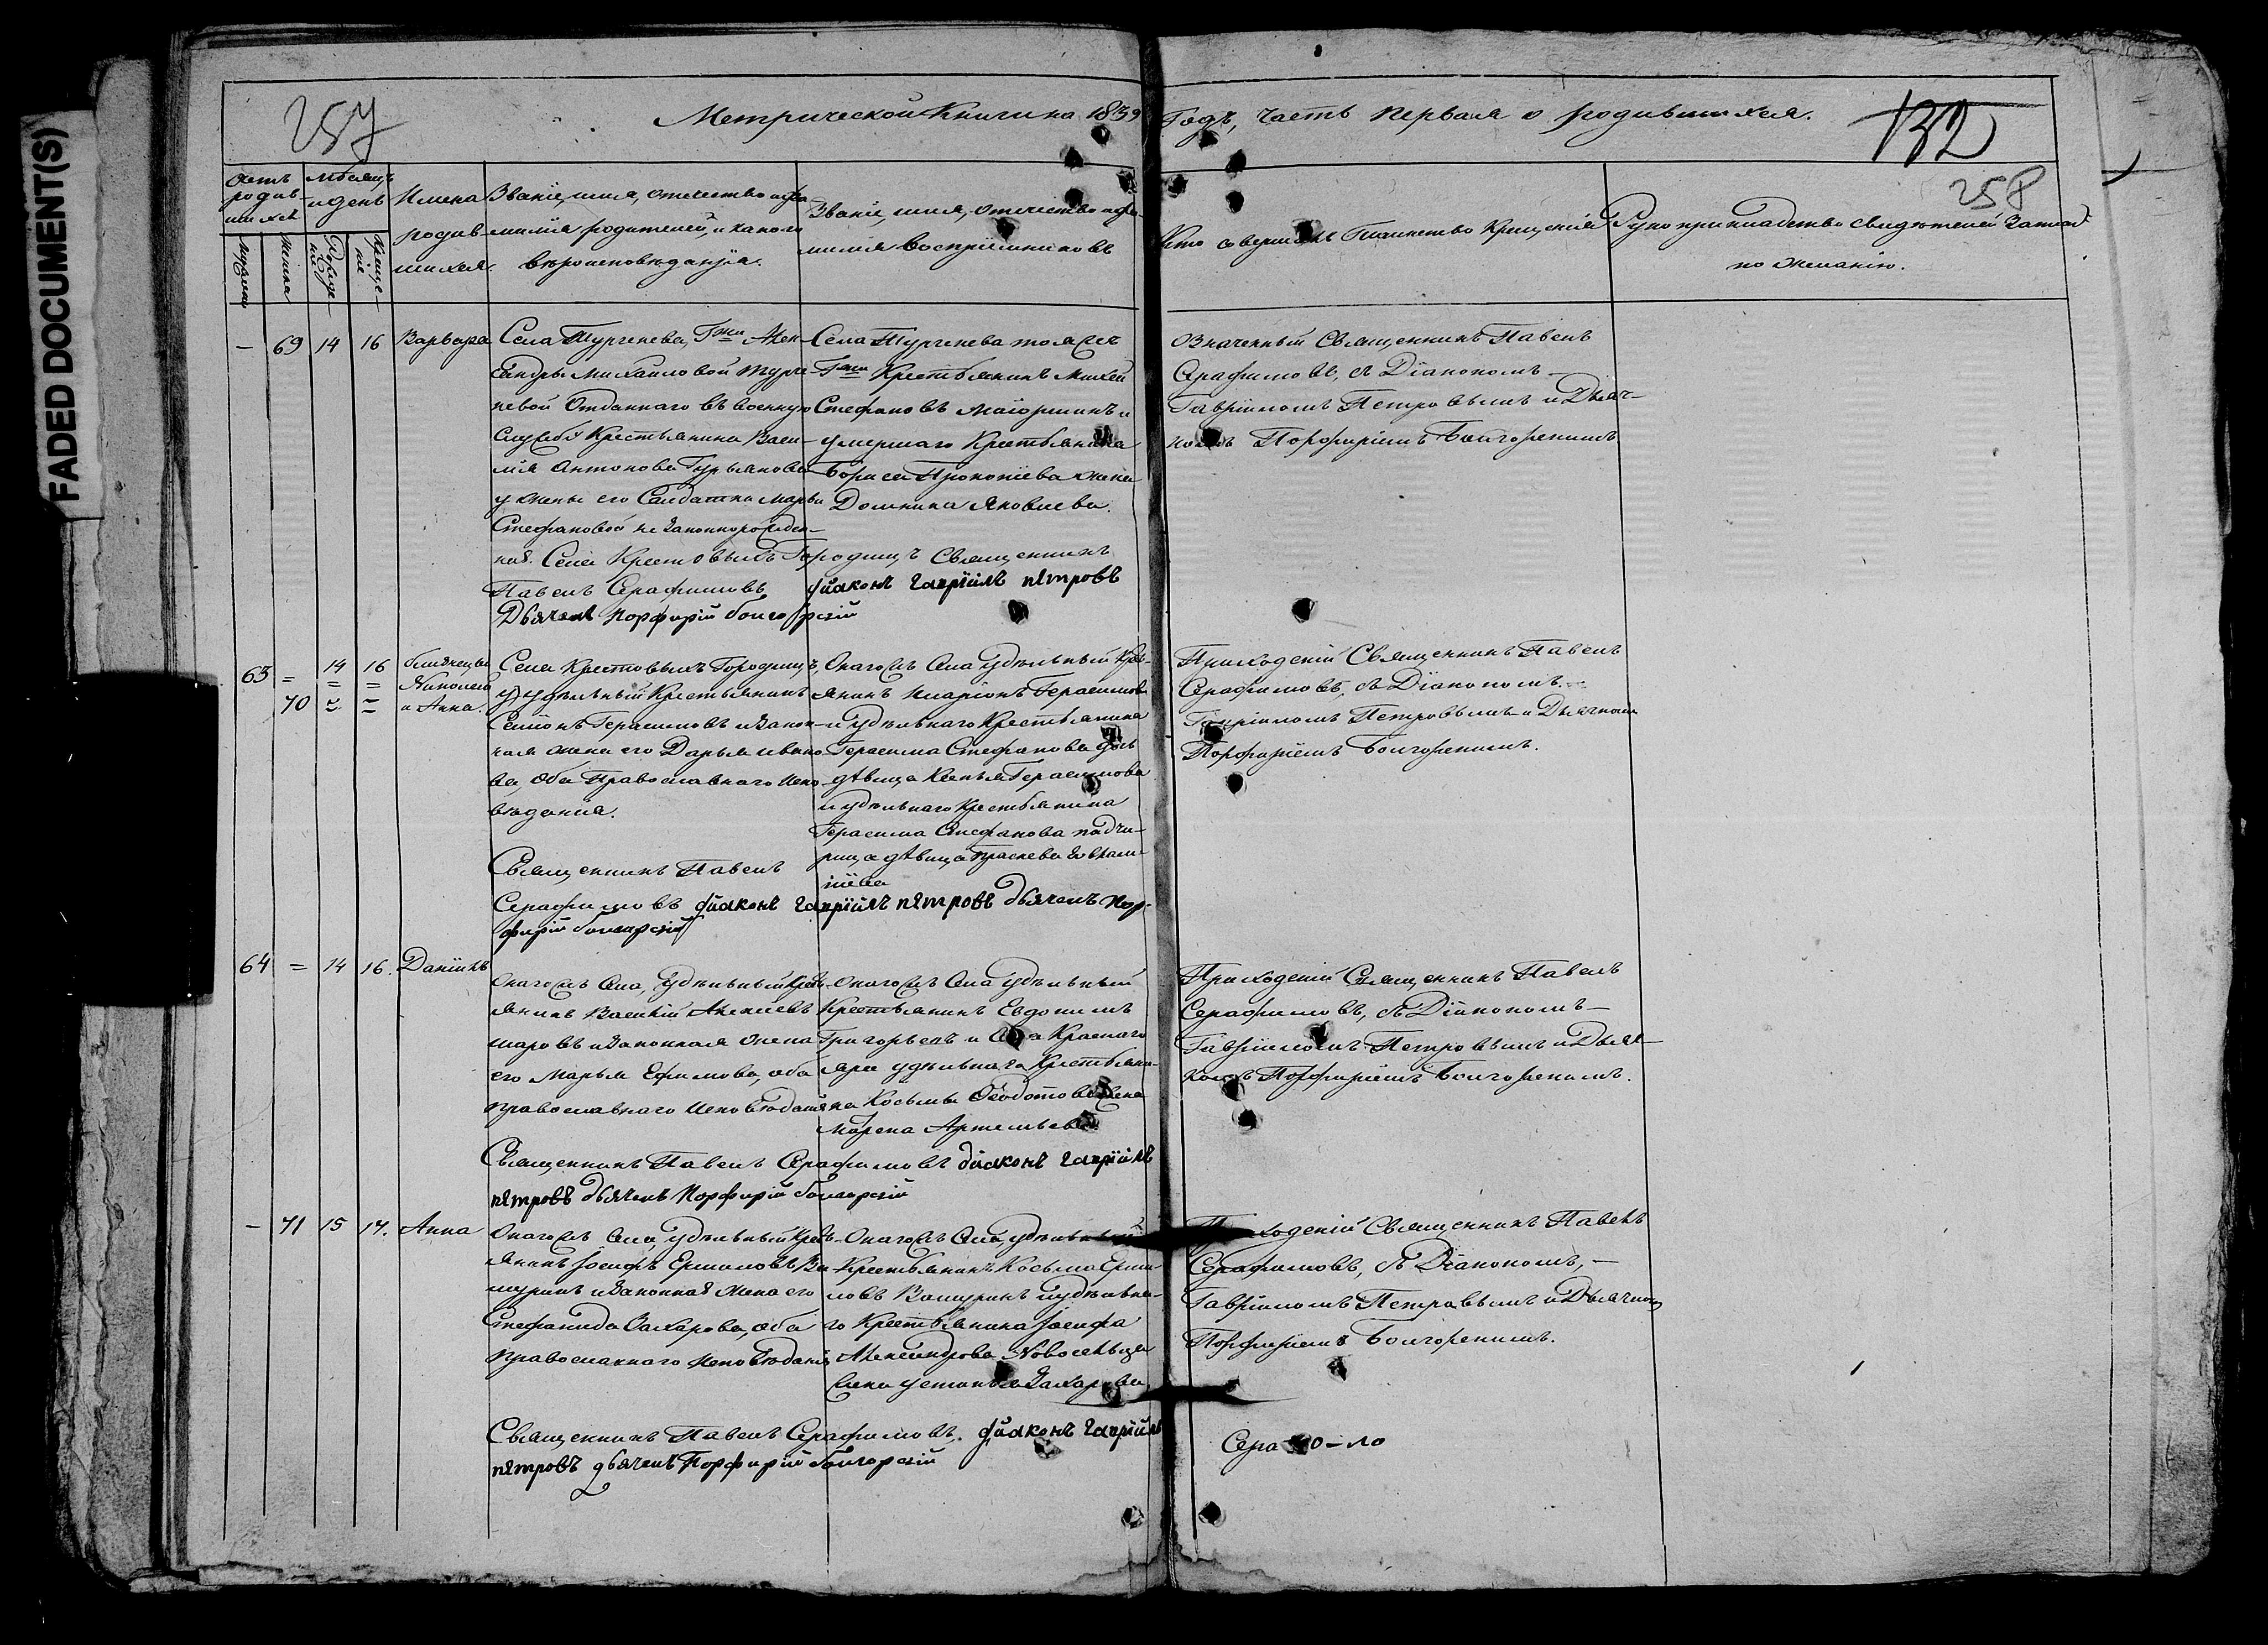 FADED DOCUMENT(S)
257
Метрической Книги на 1839
Годъ, часть первая о родившихся.
132
258
Счетъ родив-шихся
Мѣсяцъ и день
Мужеска
Женска
Рожде-нія
Креще-нія
Имена родив-шихся.
Званіе, имя, отечество и фа-
милія родителей, и какого
вѣроисповѣданія.
Званіе, имя, отечество и фа-
милія воспріемниковъ
Кто совершалъ Таинство Крещенія
Рукоприкладство свидѣтелей записи
по желанію.
– 69 14 16 Варвара
Села Тургенева, Гжи Алек-
сандры Михайловой Турге-
невой Отданнаго въ военную
службу Крестьянина Васи-
лія Антонова Гурьянова
у жены его Салдатки Марьи
Стефановой не законнорожден-
ная. Села Крестовыхъ Городищъ Священникъ
Павелъ Серафимовъ діаконъ гавріилъ петровъ
Дьячекъ Порфирій болгорскій
Села Тургенева той же
Гжи Крестьянинъ Михей
Стефановъ и
умершаго Крестьянина
Бориса Прокопіева жена
Домника Яковлева.
Означенный Священникъ Павелъ
Серафимовъ, съ Діакономъ
Гавріиломъ Петровымъ и Дьяч-
комъ Порфиріемъ Болгорскимъ
63 = 14 16 близнецы
= = = Николай
70 = = и Анна.
Села Крестовыхъ Городищъ,
удѣльный Крестьянинъ
Семенъ Герасимовъ и закон-
ная жена его Дарья Ивано-
ва, оба Православнаго Испо-
вѣданія.
Священникъ Павелъ
Серафимовъ діаконъ гавріилъ петровъ дьячекъ Пор-
фирій болгорскій
Онагожъ Села удѣльный Крес-
янинъ Иларіонъ Герасимовъ
и удѣльнаго Крестьянина
Герасима Стефанова дочь
дѣвица Ксенья Герасимова
и удѣльнаго Крестьянина
Герасима Стефанова падче-
рица дѣвица Праскева
Приходскій Священникъ Павелъ
Серафимовъ, съ Діакономъ
Гавріиломъ Петровымъ и Дьячкомъ
Порфиріемъ Болгорскимъ.
64 = 14 16. Даніилъ
Онагожъ Села, Удѣльный Крес-
янинъ Василій Алексеевъ
и законная жена
его Марья Ефимова, оба
православнаго Исповѣданія
Священникъ Павелъ Серафимовъ діаконъ гавріилъ
петровъ дьячекъ Порфирій болгорскій
Онагожъ Села удѣльный
Крестьянинъ Евдокимъ
Григорьевъ и Села Краснаго
яра удѣльнаго Крестьяни-
на Косьмы Ѳеодотова жена
Марѳа Артемьева.
Приходскій Священникъ Павелъ
Серафимовъ, съ Діакономъ
Гавріиломъ Петровымъ и Дьяч-
комъ Порфиріемъ Болгорскимъ.
– 71 15 17. Анна
Онагожъ Села, удѣльный Крес-
янинъ Іосифъ Ермоловъ Ва-
муринъ и законная жена его
Стефанида Захарова, оба
Православнаго Исповѣданія
Священникъ Павелъ Серафимовъ. діаконъ гавріилъ
петровъ дьячекъ Порфирій болгорскій
Онагожъ Села, удѣльный
Крестьянинъ Косьма Ермо-
ловъ Вамуринъ и удѣльна-
го Крестьянина Іосифа
Александрова Новосельца
жена Устинья Захарова
Приходскій Священникъ Павелъ
Серафимовъ, съ Діакономъ,
Гавріиломъ Петровымъ и Дьячкомъ
Порфиріемъ Болгорскимъ.